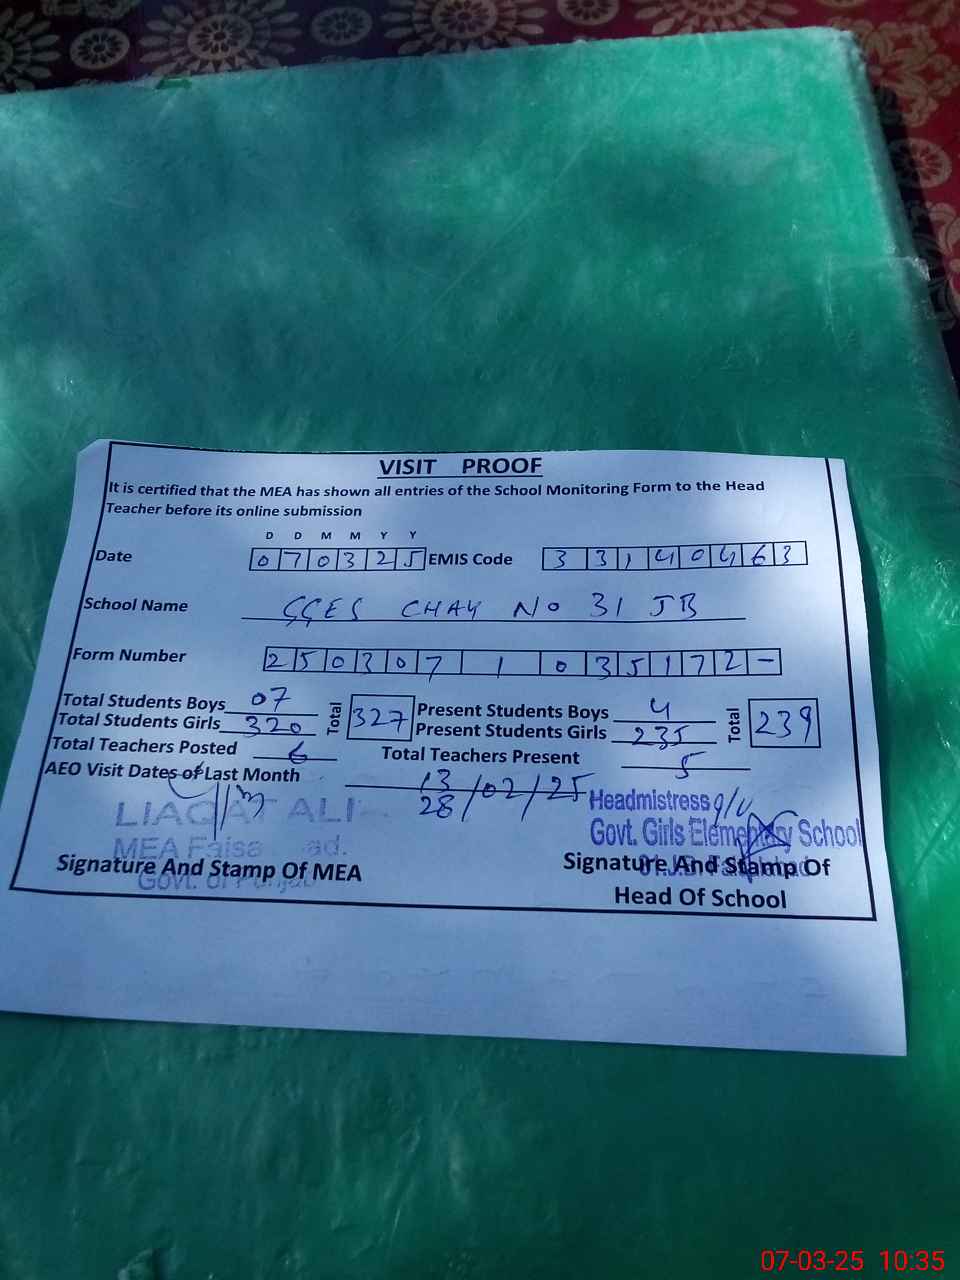 VISIT PROOF
It is certified that the MEA has shown all entries of the School Monitoring Form to the Head
Teacher before its online submission
D D M M Y Y
Date 070325 EMIS Code 33140463
School Name GGES CHAK No 31 JB
Form Number 250307 1 035172-
Total Students Boys 07 Total 327 Present Students Boys 4 Total 239
Total Students Girls 320 Present Students Girls 235
Total Teachers Posted 6 Total Teachers Present 5
AEO Visit Dates of Last Month 13
28 /02/25
LIAQAT ALI
MEA Faisa ad.
Govt. of Punjab
Signature And Stamp Of MEA
Headmistress
Govt. Girls Elementary School
31 J.B. Faisalabad
Signature And Stamp Of
Head Of School
07-03-25 10:35